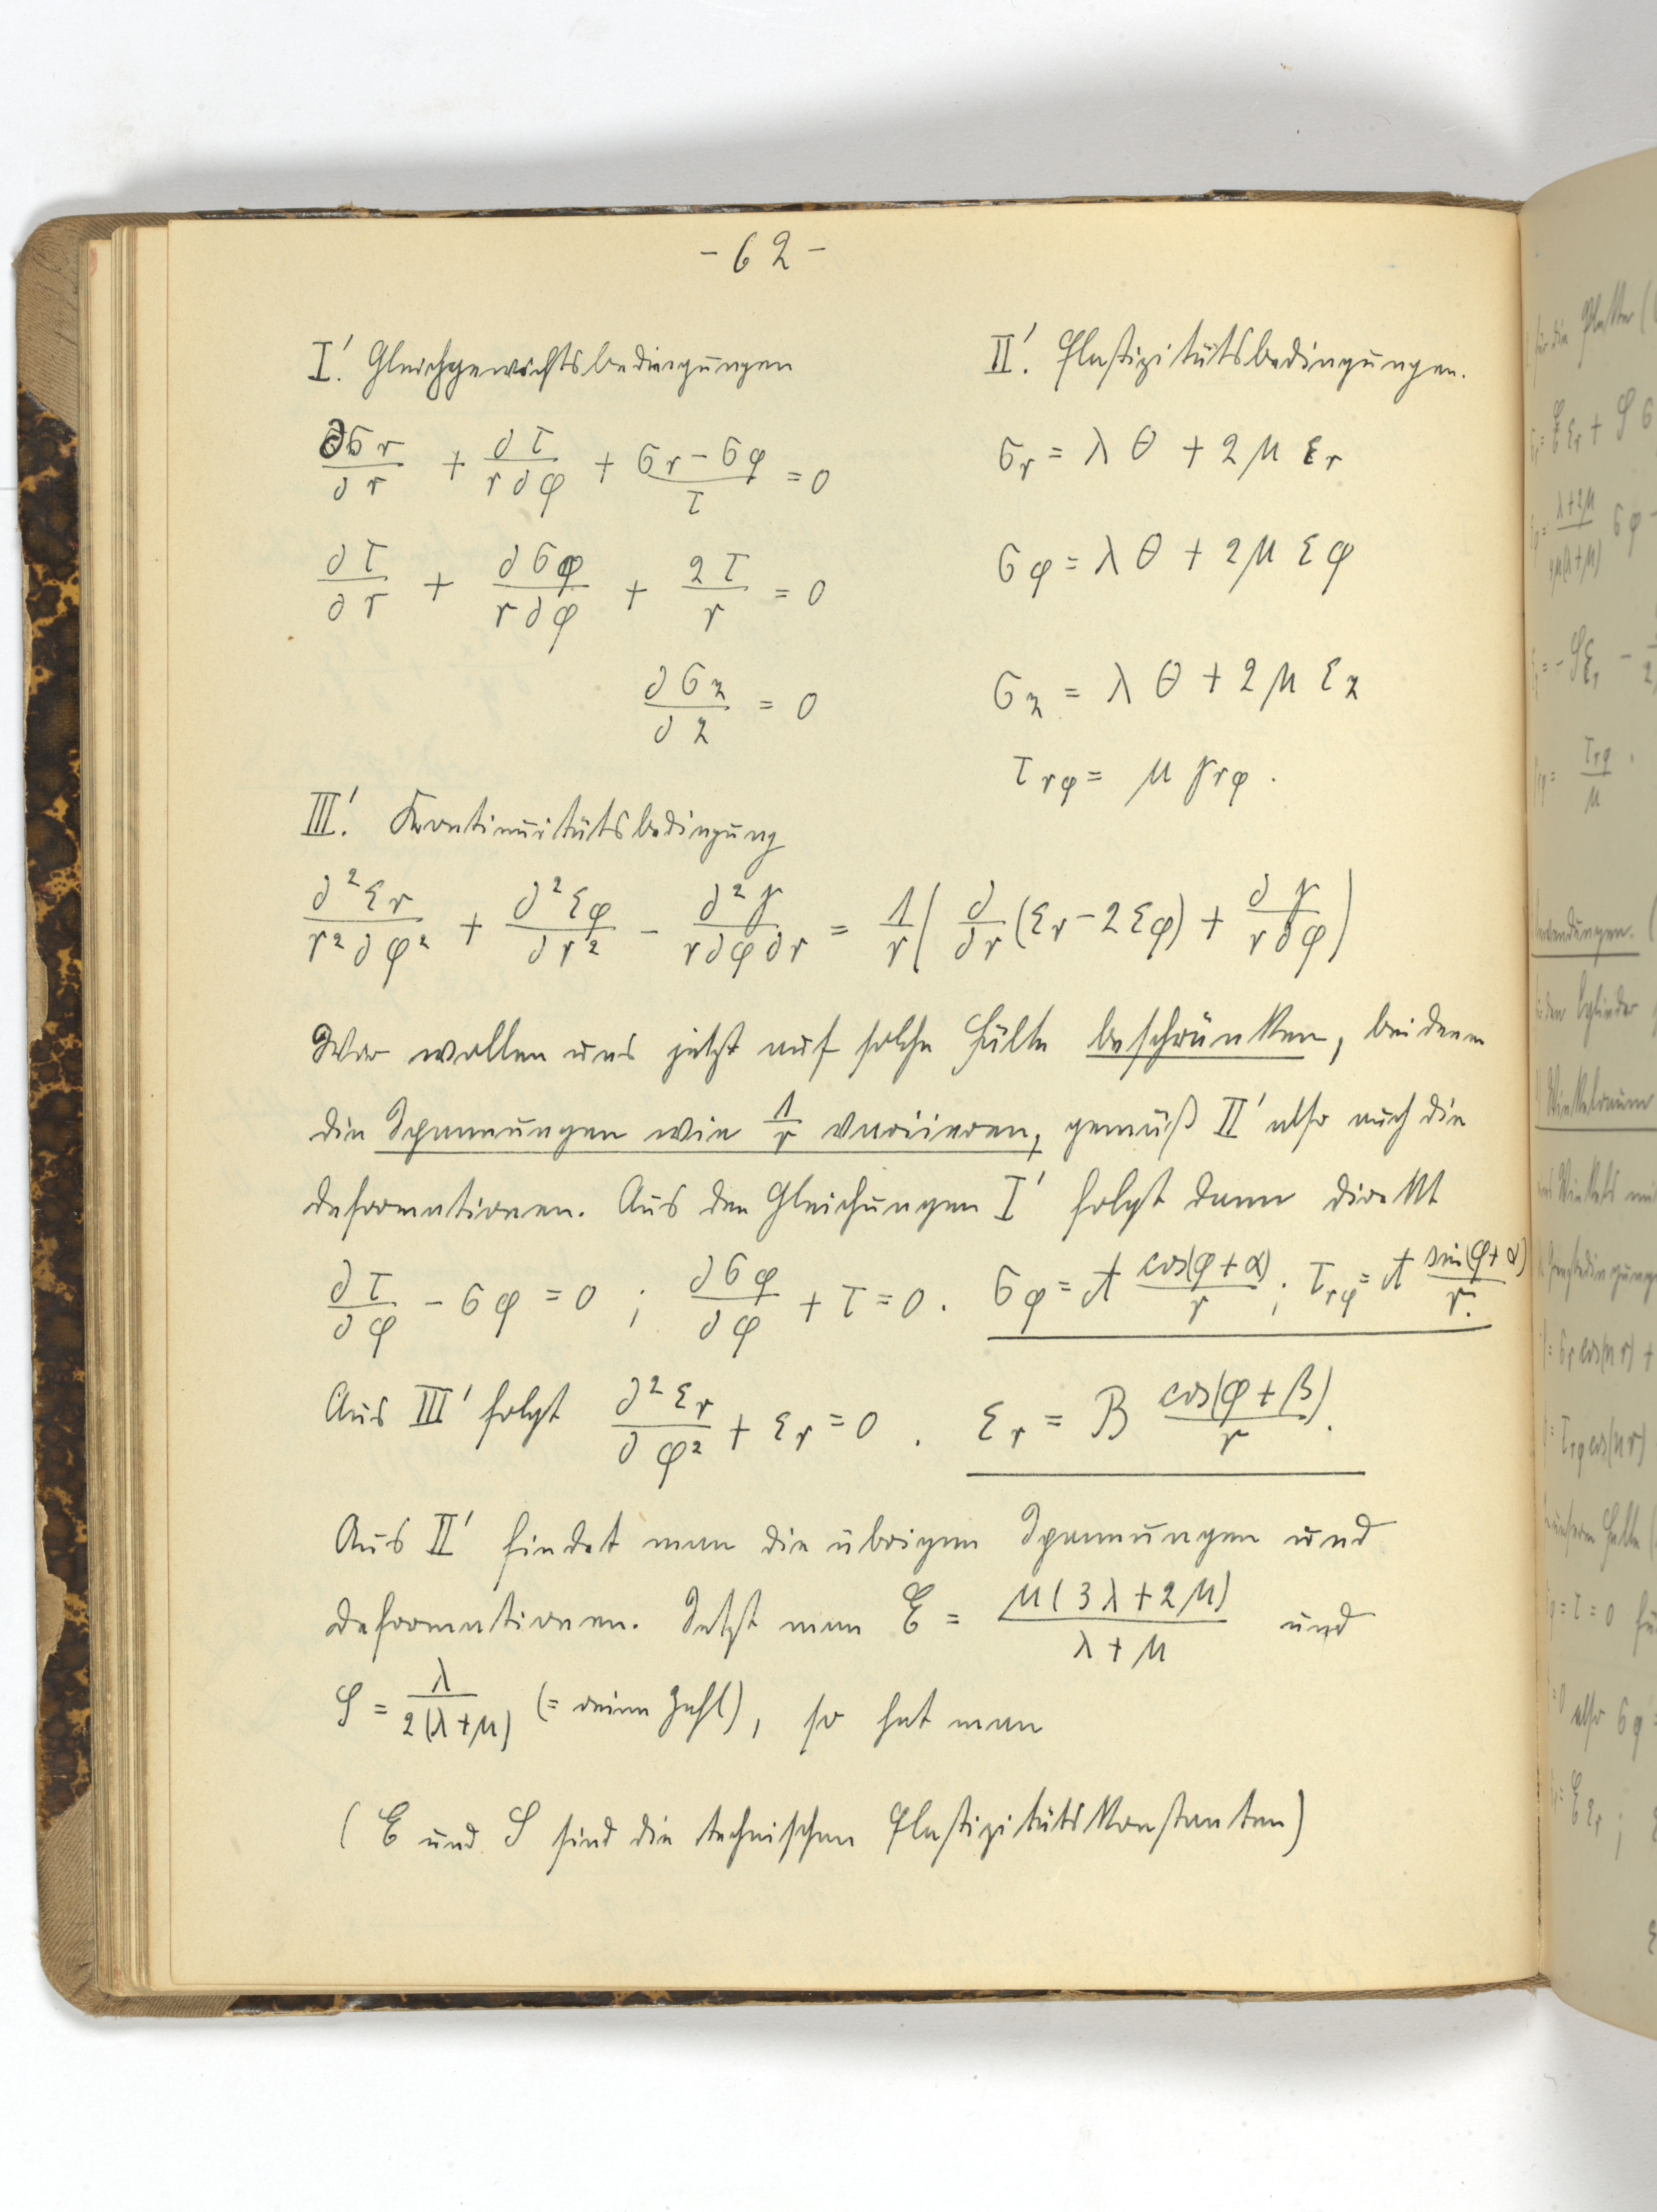 - 62 -
I'. Gleichgewichtsbedingungen
∂σr/∂r + ∂τ/r∂φ + (σr − σφ)/τ = 0
∂τ/∂r + ∂σφ/r∂φ + 2τ/r = 0
∂σz/∂z = 0
II'. Elastizitätsbedingungen.
σr = λ θ + 2μ εr
σφ = λ θ + 2μ εφ
σz = λ θ + 2μ εz
τrφ = μ γrφ.
III'. Kontinuitätsbedingung
∂²εr/r²∂φ² + ∂²εφ/∂r² − ∂²γ/r∂φ∂r = 1/r ( ∂/∂r (εr − 2εφ) + ∂γ/r∂φ )
Wir wollen uns jetzt auf solche Fälle beschränken, bei denen
die Spannungen wie 1/r variieren, gemäß II' also auch die
Deformationen. Aus den Gleichungen I' folgt dann direkt
∂τ/∂φ − σφ = 0 ; ∂σφ/∂φ + τ = 0. σφ = A cos(φ+α)/r ; τrφ = A sin(φ+α)/r.
Aus III' folgt ∂²εr/∂φ² + εr = 0. εr = B cos(φ+β)/r.
Aus II' findet man die übrigen Spannungen und
Deformationen. Setzt man E = μ(3λ+2μ)/(λ+μ) und
S = λ/2(λ+μ) (= reine Zahl), so hat man
(E und S sind die technischen Elastizitätskonstanten)